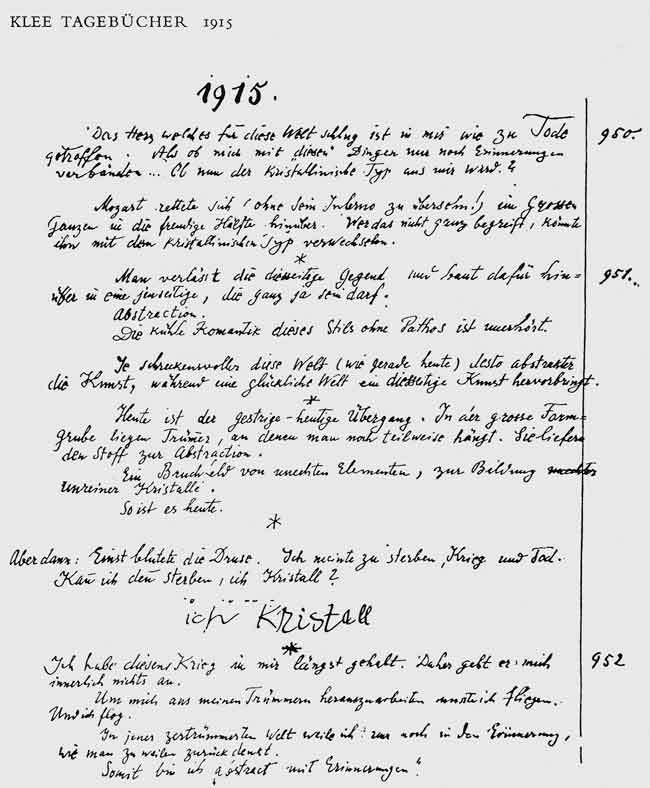 KLEE TAGEBÜCHER 1915
1915.
"Das Herz welches für diese Welt schlug ist in mir wie zu Tode 950.
getroffen. Als ob mich mit "diesen" Dingen nur noch Erinnerungen
verbänden... Ob nun der kristallinische Typ aus mir wird?
Mozart rettete sich (ohne sein Inferno zu übersehn!) im Grossen
Ganzen in die freudige Hälfte hinüber. Wer das nicht ganz begreift, könnte
ihn mit dem kristallinischen Typ verwechseln.
*
Man verlässt die diesseitige Gegend und baut dafür hin= 951.
über in eine jenseitige, die ganz ja sein darf.
Abstraction.
Die kühle Romantik dieses Stils ohne Pathos ist unerhört.
Je schreckensvoller diese Welt (wie gerade heute) desto abstrakter
die Kunst, während eine glückliche Welt ein diesseitige Kunst hervorbringt.
*
Heute ist der gestrige-heutige Übergang. In der grosse Form=
grube liegen Trümer, an denen man noch teilweise hängt. Sie liefern
den Stoff zur Abstraction.
Ein Bruchfeld von unechten Elementen, zur Bildung
unreiner Kristalle.
So ist es heute.
*
Aber dann: Einst blutete die Druse. Ich meinte zu sterben, Krieg und Tod.
Kan̄ ich den sterben, ich Kristall?
ich Kristall
*
Ich habe diesens Krieg in mir längst gehabt. Daher geht er mich 952
innerlich nichts an.
Um mich aus meinen Trümmern herauszuarbeiten musste ich fliegen.
Und ich flog.
In jener zertrümmerten Welt weile ich nur noch in der Erinnerung,
wie man zuweilen zurückdenkt.
Somit bin ich "abstract mit Erinnerungen".